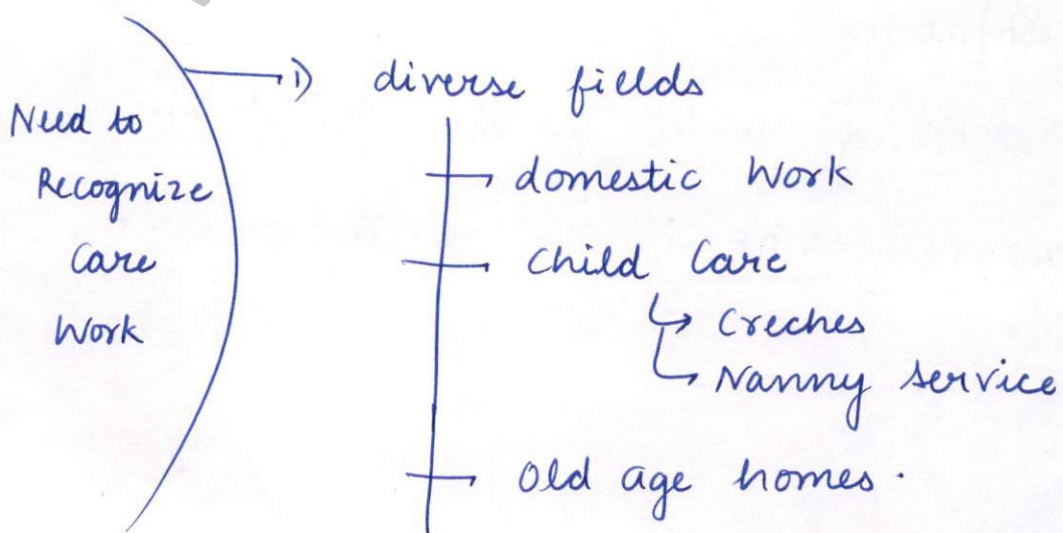 Need to
Recognize
Care
Work
1) diverse fields
domestic Work
Child Care
Creches
Nanny service
Old age homes.